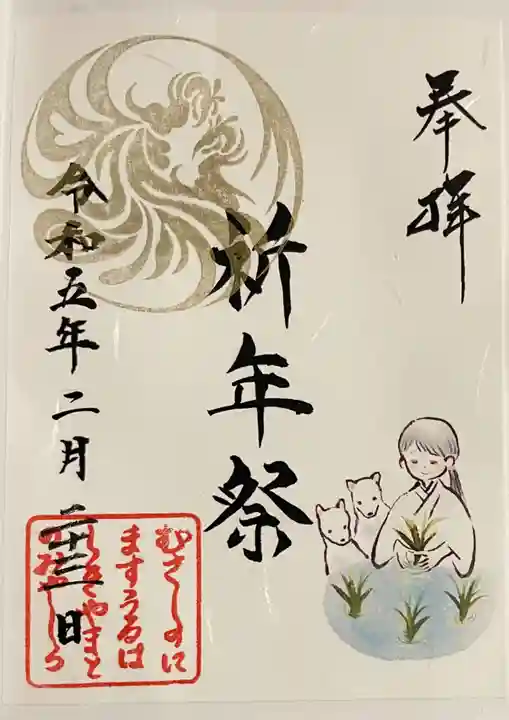 奉拝
祈年祭
令和五年二月二十三日
むさしのに
ますうるは
しきやまと
やしろ